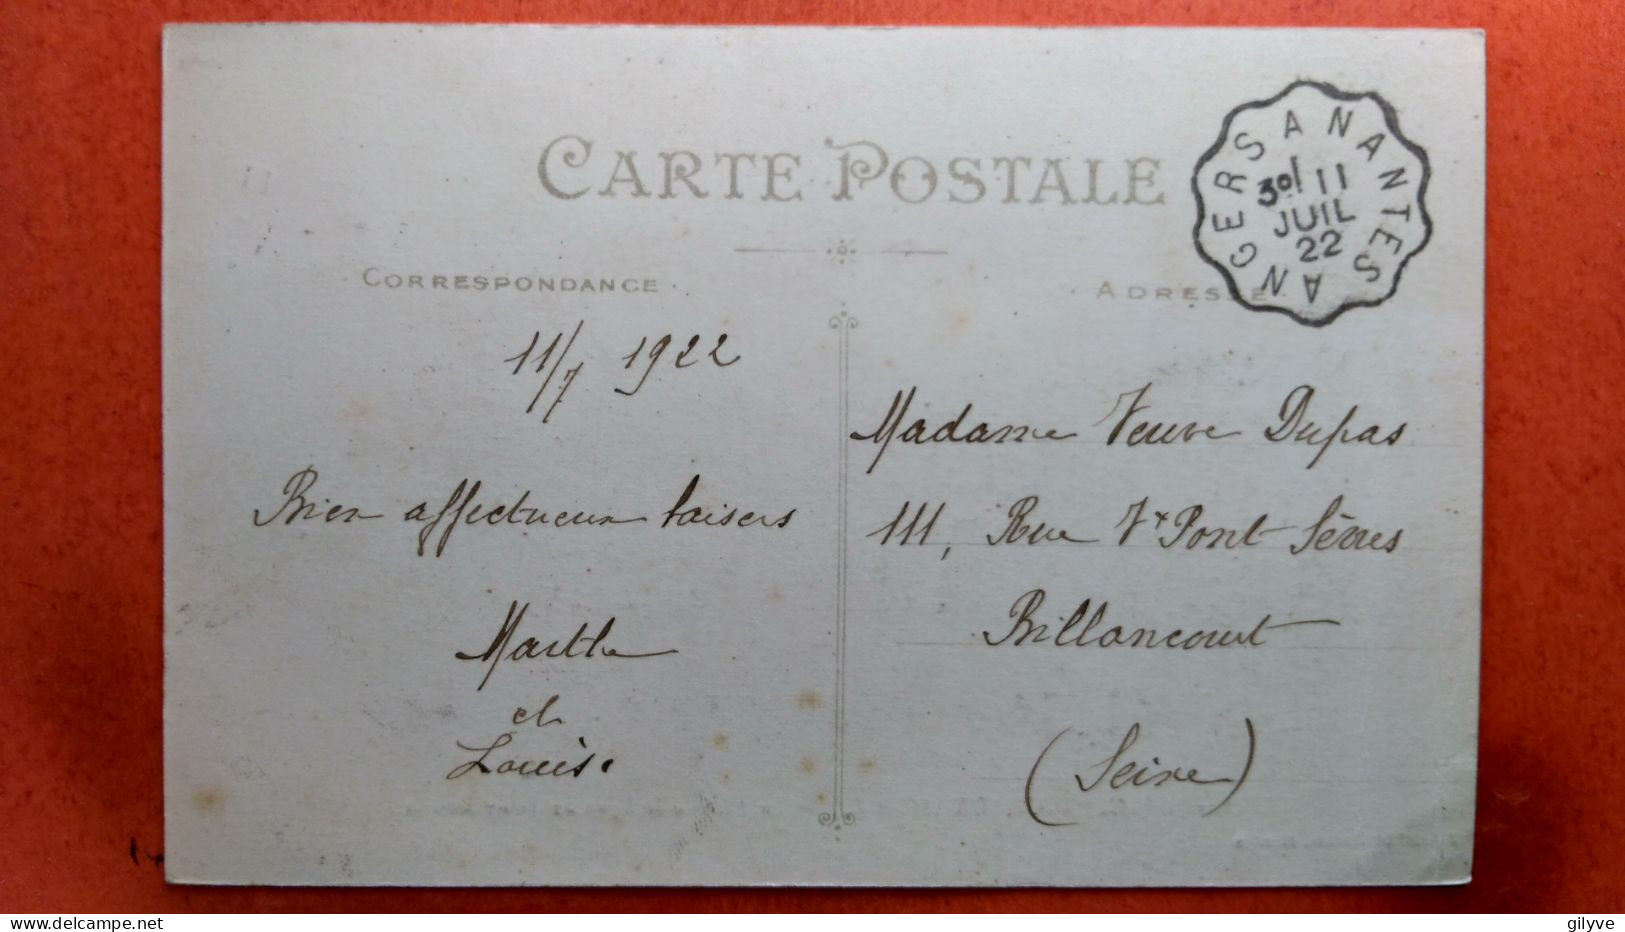 CARTE POSTALE
ANGERS A NANTES
3º/ 11
JUIL
22
CORRESPONDANCE
ADRESSE
11/7 1922
Bien affectueux baisers
Marthe
et
Louis.
Madame Veuve Dupas
111, Rue Vx Pont Sèvres
Billancourt
(Seine)
delcampe.net
gilyve